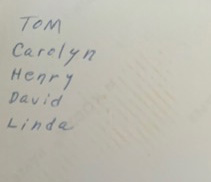 TOM
Carolyn
Henry
David
Linda